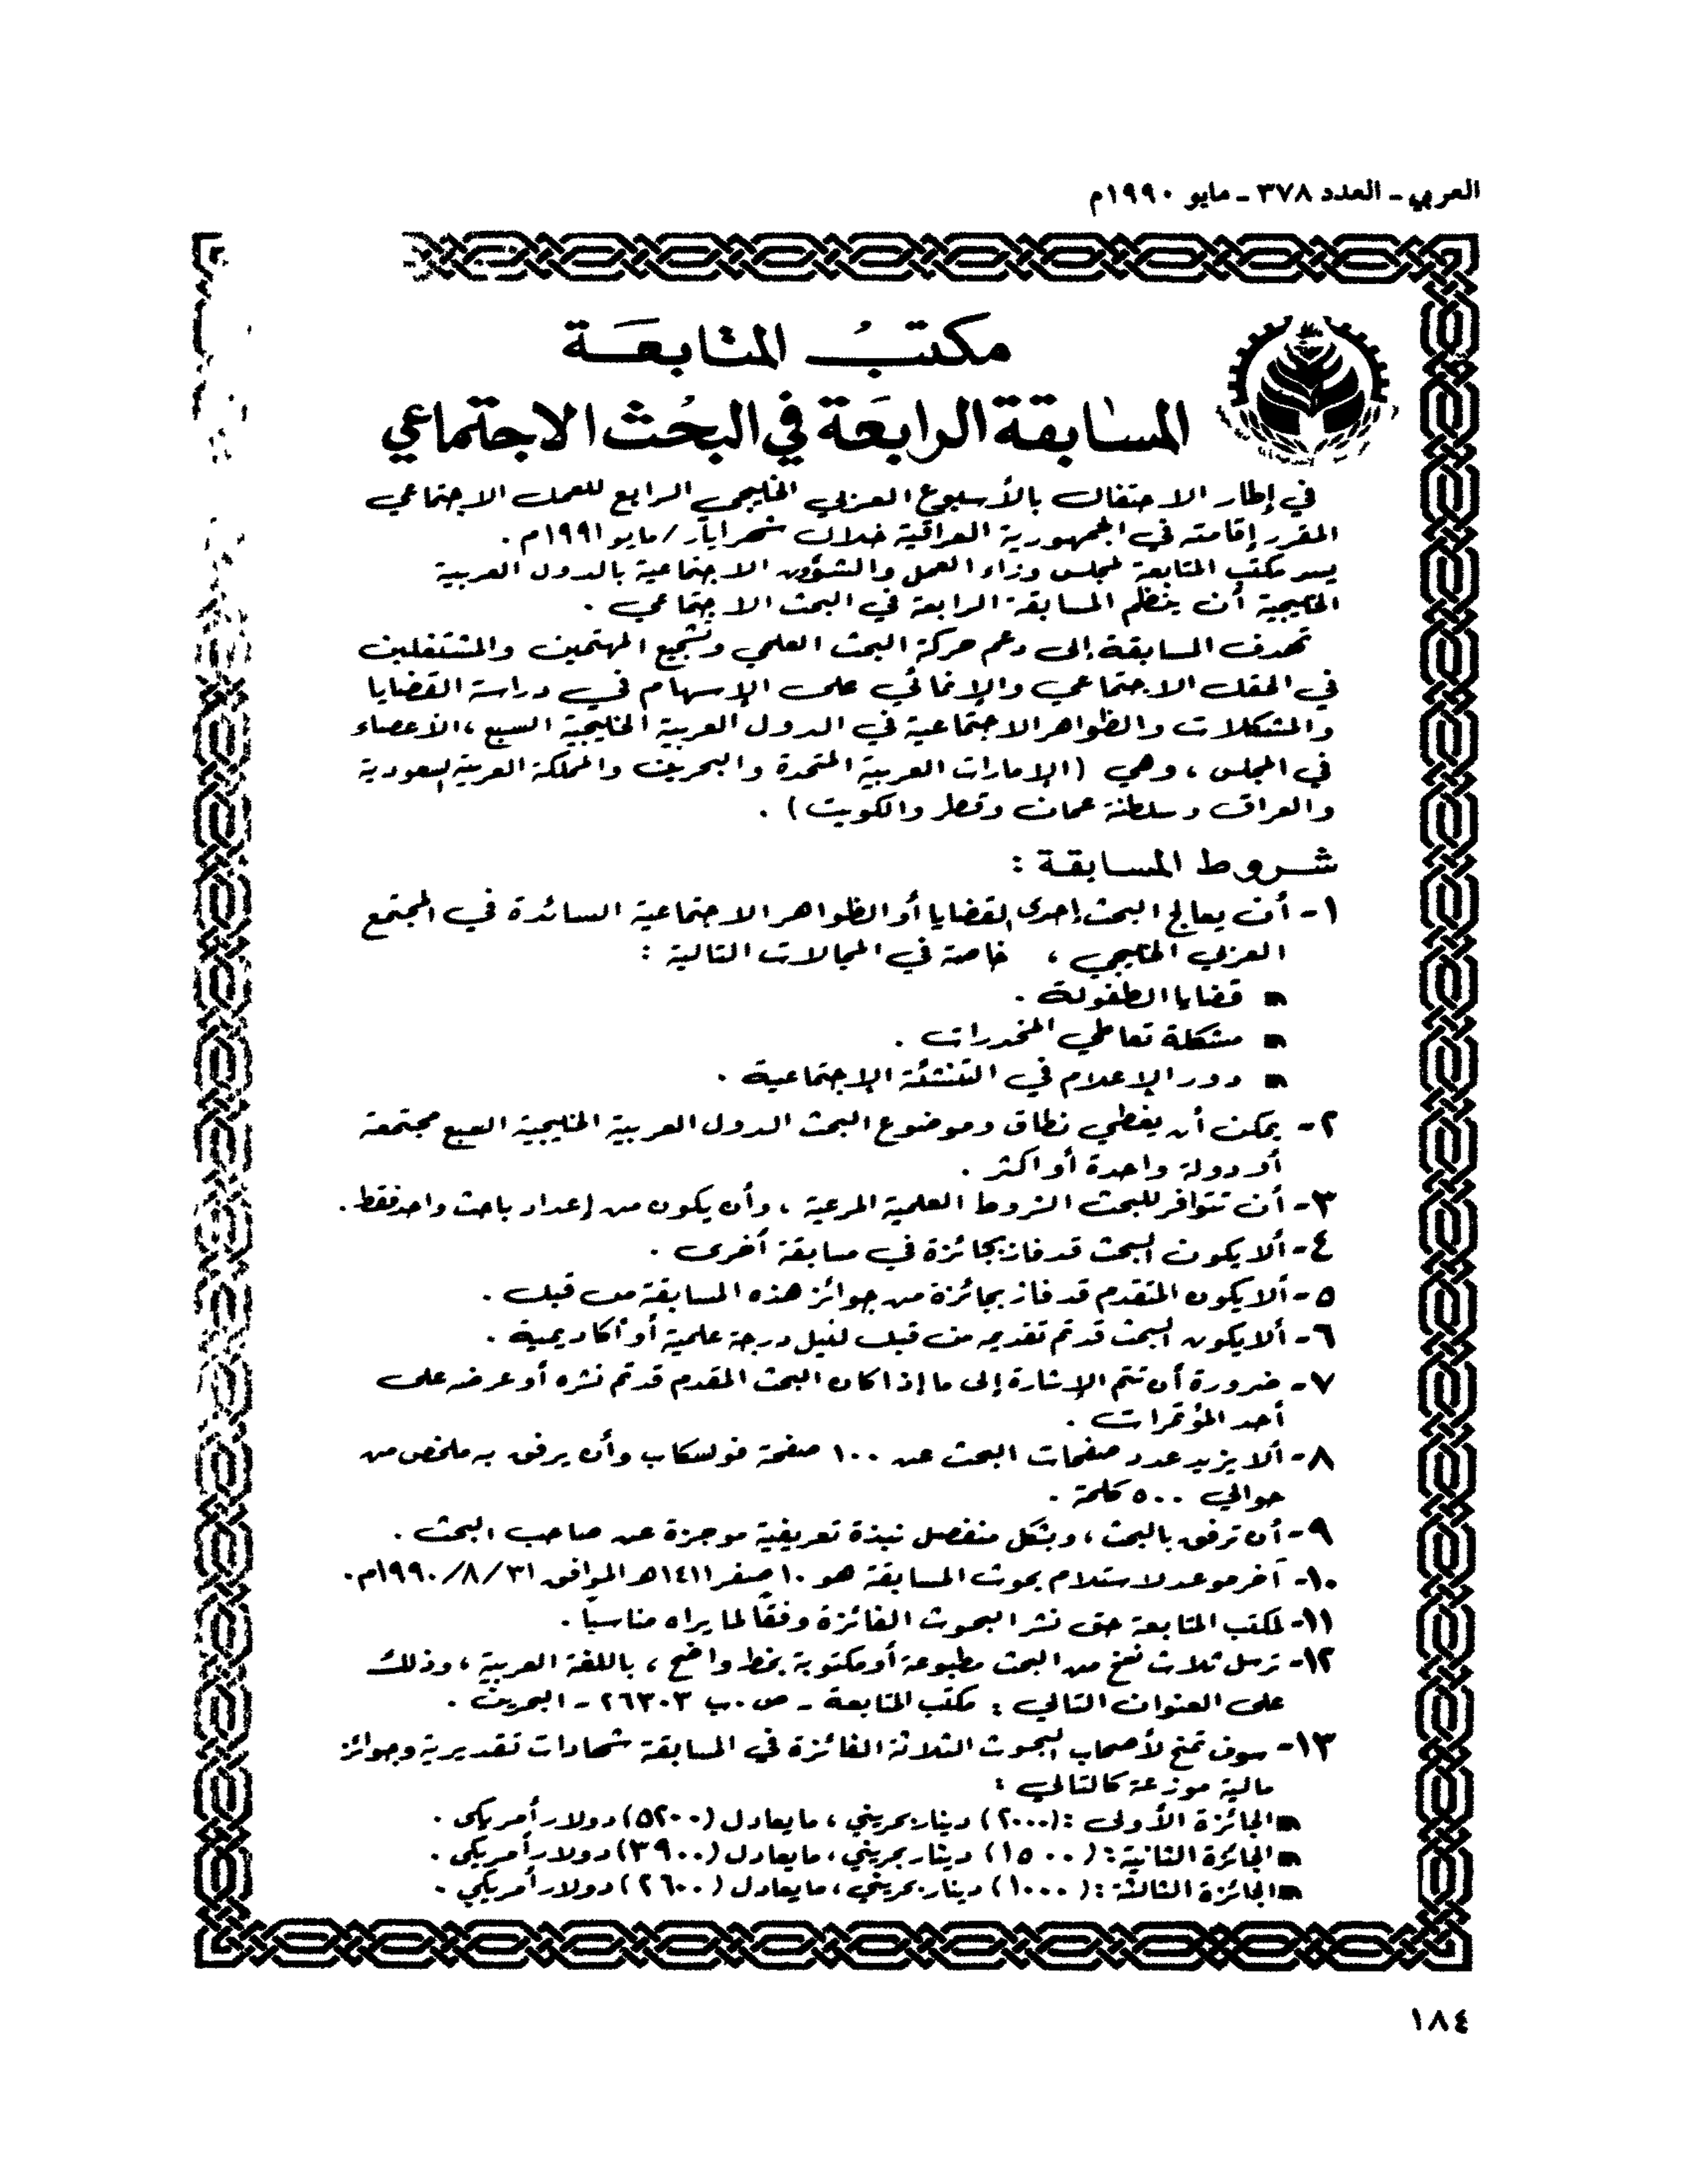 العربي ـ العدد ٣٧٨ ـ مايو ١٩٩٠م
مكتب المتابعة
المسابقة الرابعة في البحث الاجتماعي
في إطار الاحتفال بالأسبوع العربي الخليجي الرابع للعمل الاجتماعي
المقرر إقامته في الجمهورية العراقية خلال شهر أيار/مايو ١٩٩١م .
يسر مكتب المتابعة لمجلس وزراء العمل والشؤون الاجتماعية بالدول العربية
الخليجية أن ينظم المسابقة الرابعة في البحث الاجتماعي .
تهدف المسابقة إلى دعم حركة البحث العلمي وتشجيع المهتمين والمشتغلين
في الحقل الاجتماعي والإنمائي على الإسهام في دراسة القضايا
والمشكلات والظواهر الاجتماعية في الدول العربية الخليجية السبع ، الأعضاء
في المجلس ، وهي (الإمارات العربية المتحدة والبحرين والمملكة العربية السعودية
والعراق وسلطنة عمان وقطر والكويت) .
شروط المسابقة :
١- أن يعالج البحث إحدى القضايا أو الظواهر الاجتماعية السائدة في المجتمع
العربي الخليجي ، خاصة في المجالات التالية :
■ قضايا الطفولة .
■ مشكلة تعاطي المخدرات .
■ دور الإعلام في التنشئة الإجتماعية .
٢- يمكن أن يغطي نطاق وموضوع البحث الدول العربية الخليجية السبع مجتمعة
أو دولة واحدة أو اكثر .
٣- أن تتوافر للبحث الشروط العلمية المرعية ، وأن يكون من إعداد باحث واحد فقط .
٤- ألا يكون البحث قد فاز بجائزة في مسابقة أخرى .
٥- ألا يكون المتقدم قد فاز بجائزة من جوائز هذه المسابقة من قبل .
٦- ألا يكون البحث قد تم تقديمه من قبل لنيل درجة علمية أو أكاديمية .
٧- ضرورة أن تتم الإشارة إلى ما إذا كان البحث المقدم قد تم نشره أو عرضه على
أحد المؤتمرات .
٨- ألا يزيد عدد صفحات البحث عن ١٠٠ صفحة فولسكاب وأن يرفق به ملخص من
حوالي ٥٠٠ كلمة .
٩- أن ترفق بالبحث ، وبشكل منفصل نبذة تعريفية موجزة عن صاحب البحث .
١٠- آخر موعد لاستلام بحوث المسابقة هو ١٠ صفر ١٤١١هـ الموافق ٣١/٨/١٩٩٠م.
١١- لمكتب المتابعة حق نشر البحوث الفائزة وفقاً لما يراه مناسباً .
١٢- ترسل ثلاث نسخ من البحث مطبوعة أو مكتوبة بخط واضح ، باللغة العربية ، وذلك
على العنوان التالي : مكتب المتابعة ـ ص.ب ٢٦٣٠٣ ـ البحرين .
١٣- سوف تمنح لأصحاب البحوث الثلاثة الفائزة في المسابقة شهادات تقديرية وجوائز
مالية موزعة كالتالي :
■ الجائزة الأولى : (٢٠٠٠) دينار بحريني ، مايعادل (٥٢٠٠) دولار أمريكي .
■ الجائزة الثانية : (١٥٠٠) دينار بحريني ، مايعادل (٣٩٠٠) دولار أمريكي .
■ الجائزة الثالثة : (١٠٠٠) دينار بحريني ، مايعادل (٢٦٠٠) دولار أمريكي .
١٨٤